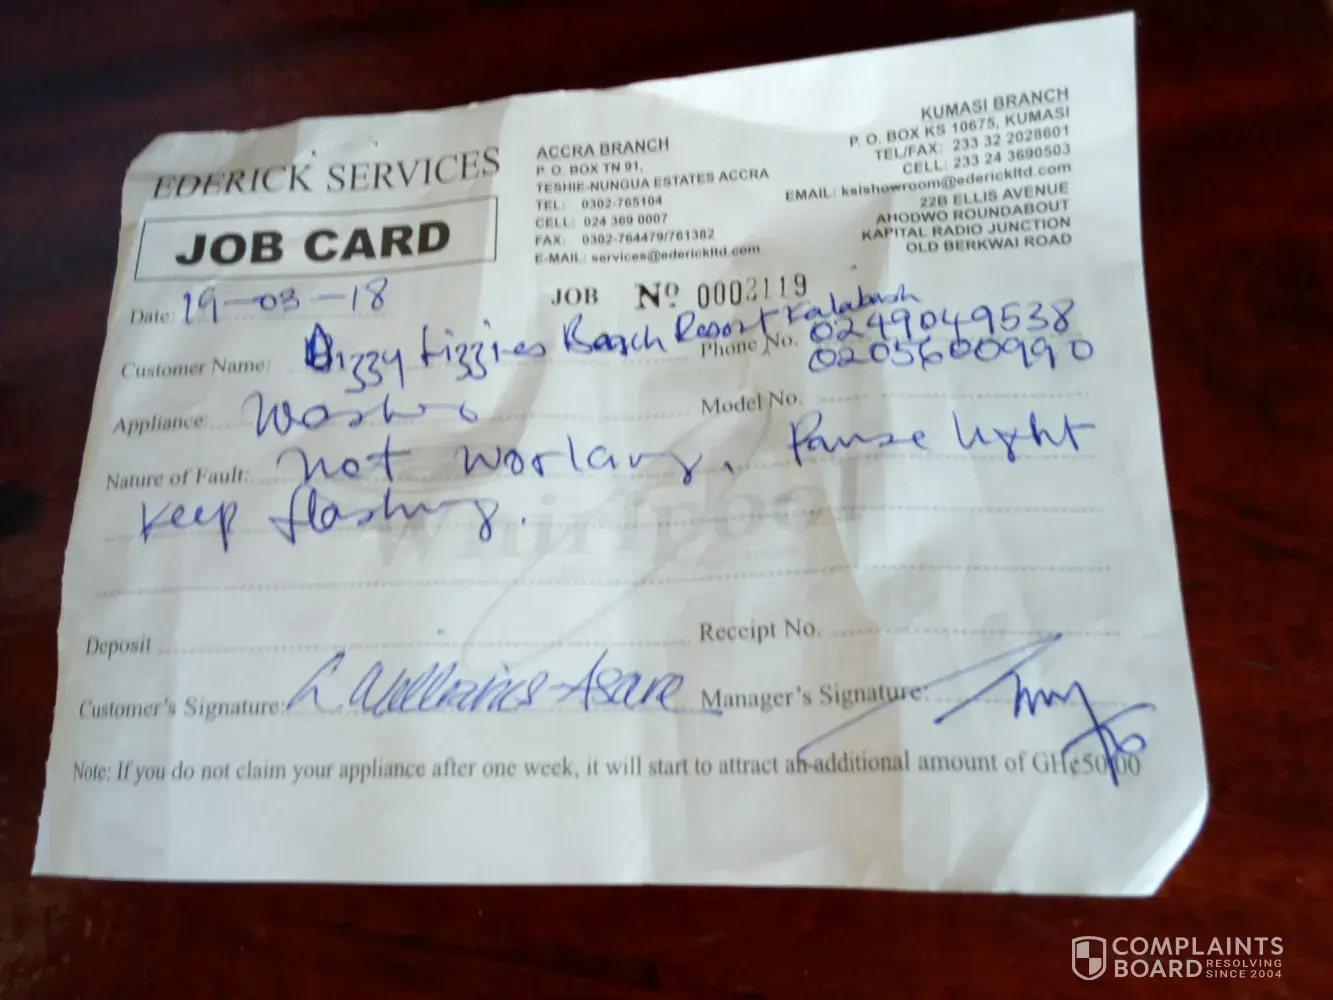 EDERICK SERVICES
JOB CARD
ACCRA BRANCH
P. O. BOX TN 91,
TESHIE-NUNGUA ESTATES ACCRA
TEL: 0302-765104
CELL: 024 369 0007
FAX: 0302-764479/761382
E-MAIL: services@ederickltd.com
KUMASI BRANCH
P. O. BOX KS 10675, KUMASI
TEL/FAX: 233 32 2028601
CELL: 233 24 3690503
EMAIL: ksishowroom@ederickltd.com
22B ELLIS AVENUE
AHODWO ROUNDABOUT
KAPITAL RADIO JUNCTION
OLD BERKWAI ROAD
JOB Nº 0002119
Date: 19-03-18
Customer Name: Dizzy Lizzies Beach Resort Kalabash
Phone No. 0249049538
0205600990
Appliance: Washer
Model No.
Nature of Fault: not working, Pause light
keep flashing.
Whirlpool
Deposit
Receipt No.
Customer's Signature: Williams-Asare
Manager's Signature:
Note: If you do not claim your appliance after one week, it will start to attract an additional amount of GH¢50.00
COMPLAINTS
BOARD RESOLVING
SINCE 2004